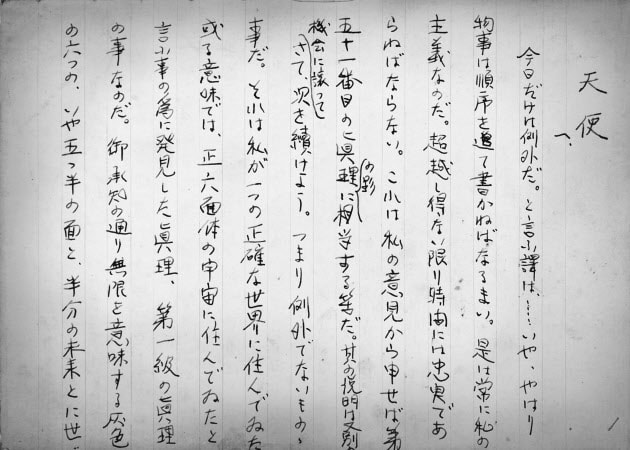 天使
今日だけは例外だ。と言ふ譯は、……いや、やはり
物事は順序を追て書かねばなるまい。是は常に私の
主義なのだ。超越し得ない限り時間には忠実であ
らねばならない。これは私の意見から申せば第
五十一番目の眞理の影に相当する筈だ。其の説明は又別
機会に譲って
さて、次を續けよう。つまり例外でないもの
事だ。それは私が一つの正確な世界に住んでゐた
或る意味では、正六面体の宇宙に住んでゐたと
言ふ事の為に発見した眞理、第一級の眞理
の事なのだ。御承知の通り無限を意味する灰色
の六つの、いや五つ半の面と、半分の未来とに世